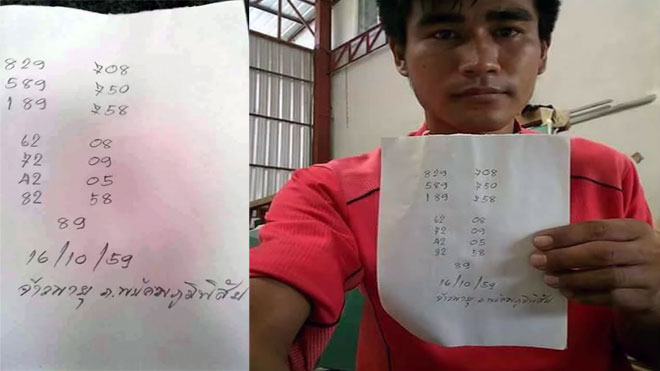 829 708
589 750
189 758
62 08
72 09
42 05
82 58
89
16/10/59
จ้าวพายุ อ.พยัคฆภูมิพิสัย
829 708
589 750
189 758
62 08
72 09
42 05
82 58
89
16/10/59
จ้าวพายุ อ.พยัคฆภูมิพิสัย